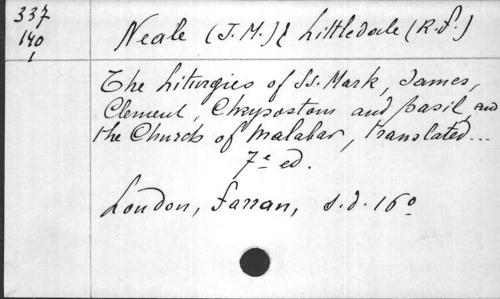 337
140
1
Neale (J. M.) & Littledale (R. F.)
The Liturgies of SS. Mark, James,
Clement, Chrysostom and Basil, and
the Church of Malabar, translated...
7e ed.
London, Farran, s.d. 16o